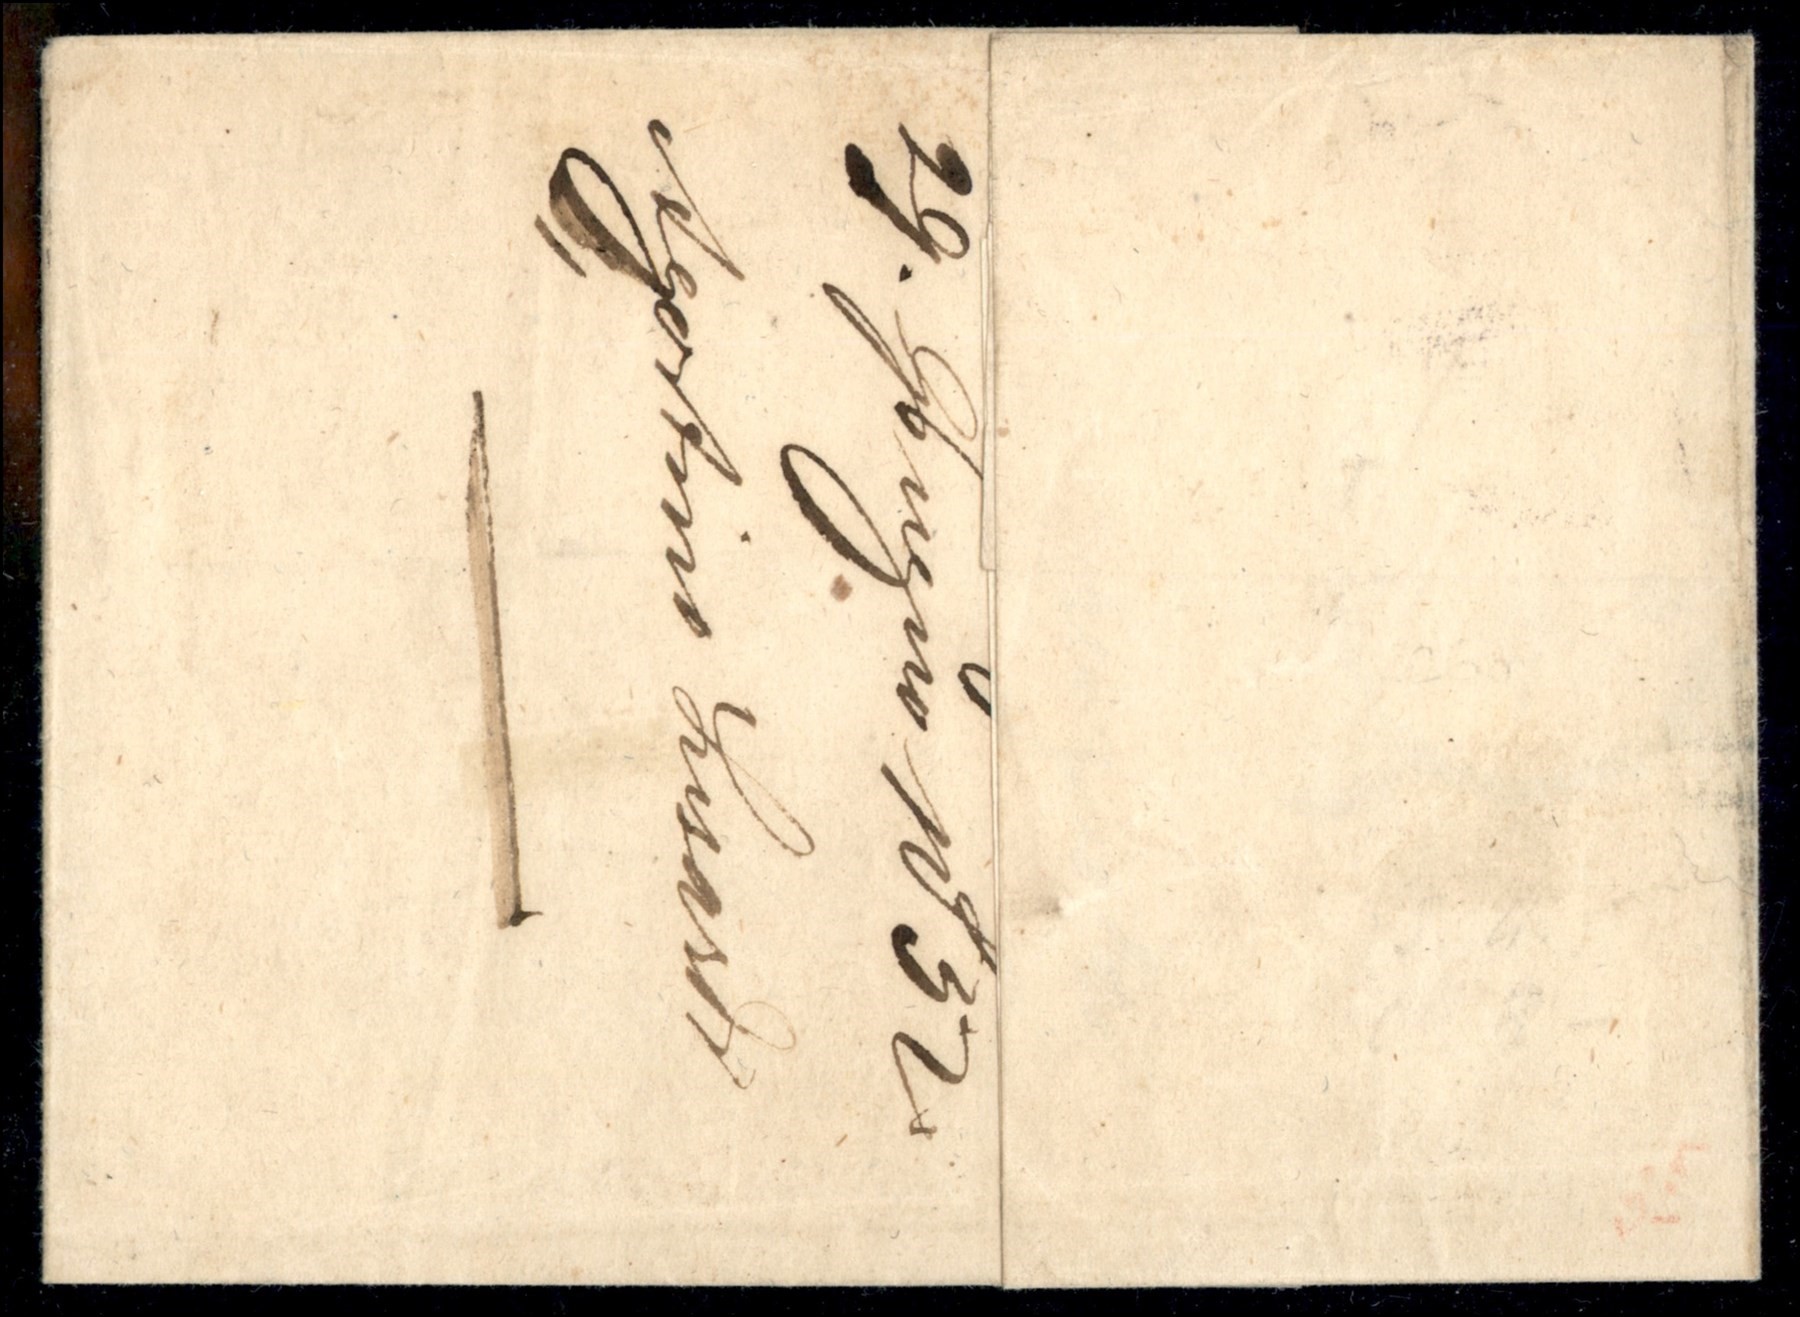 29. Giugno 1832
Agostino Lusardi